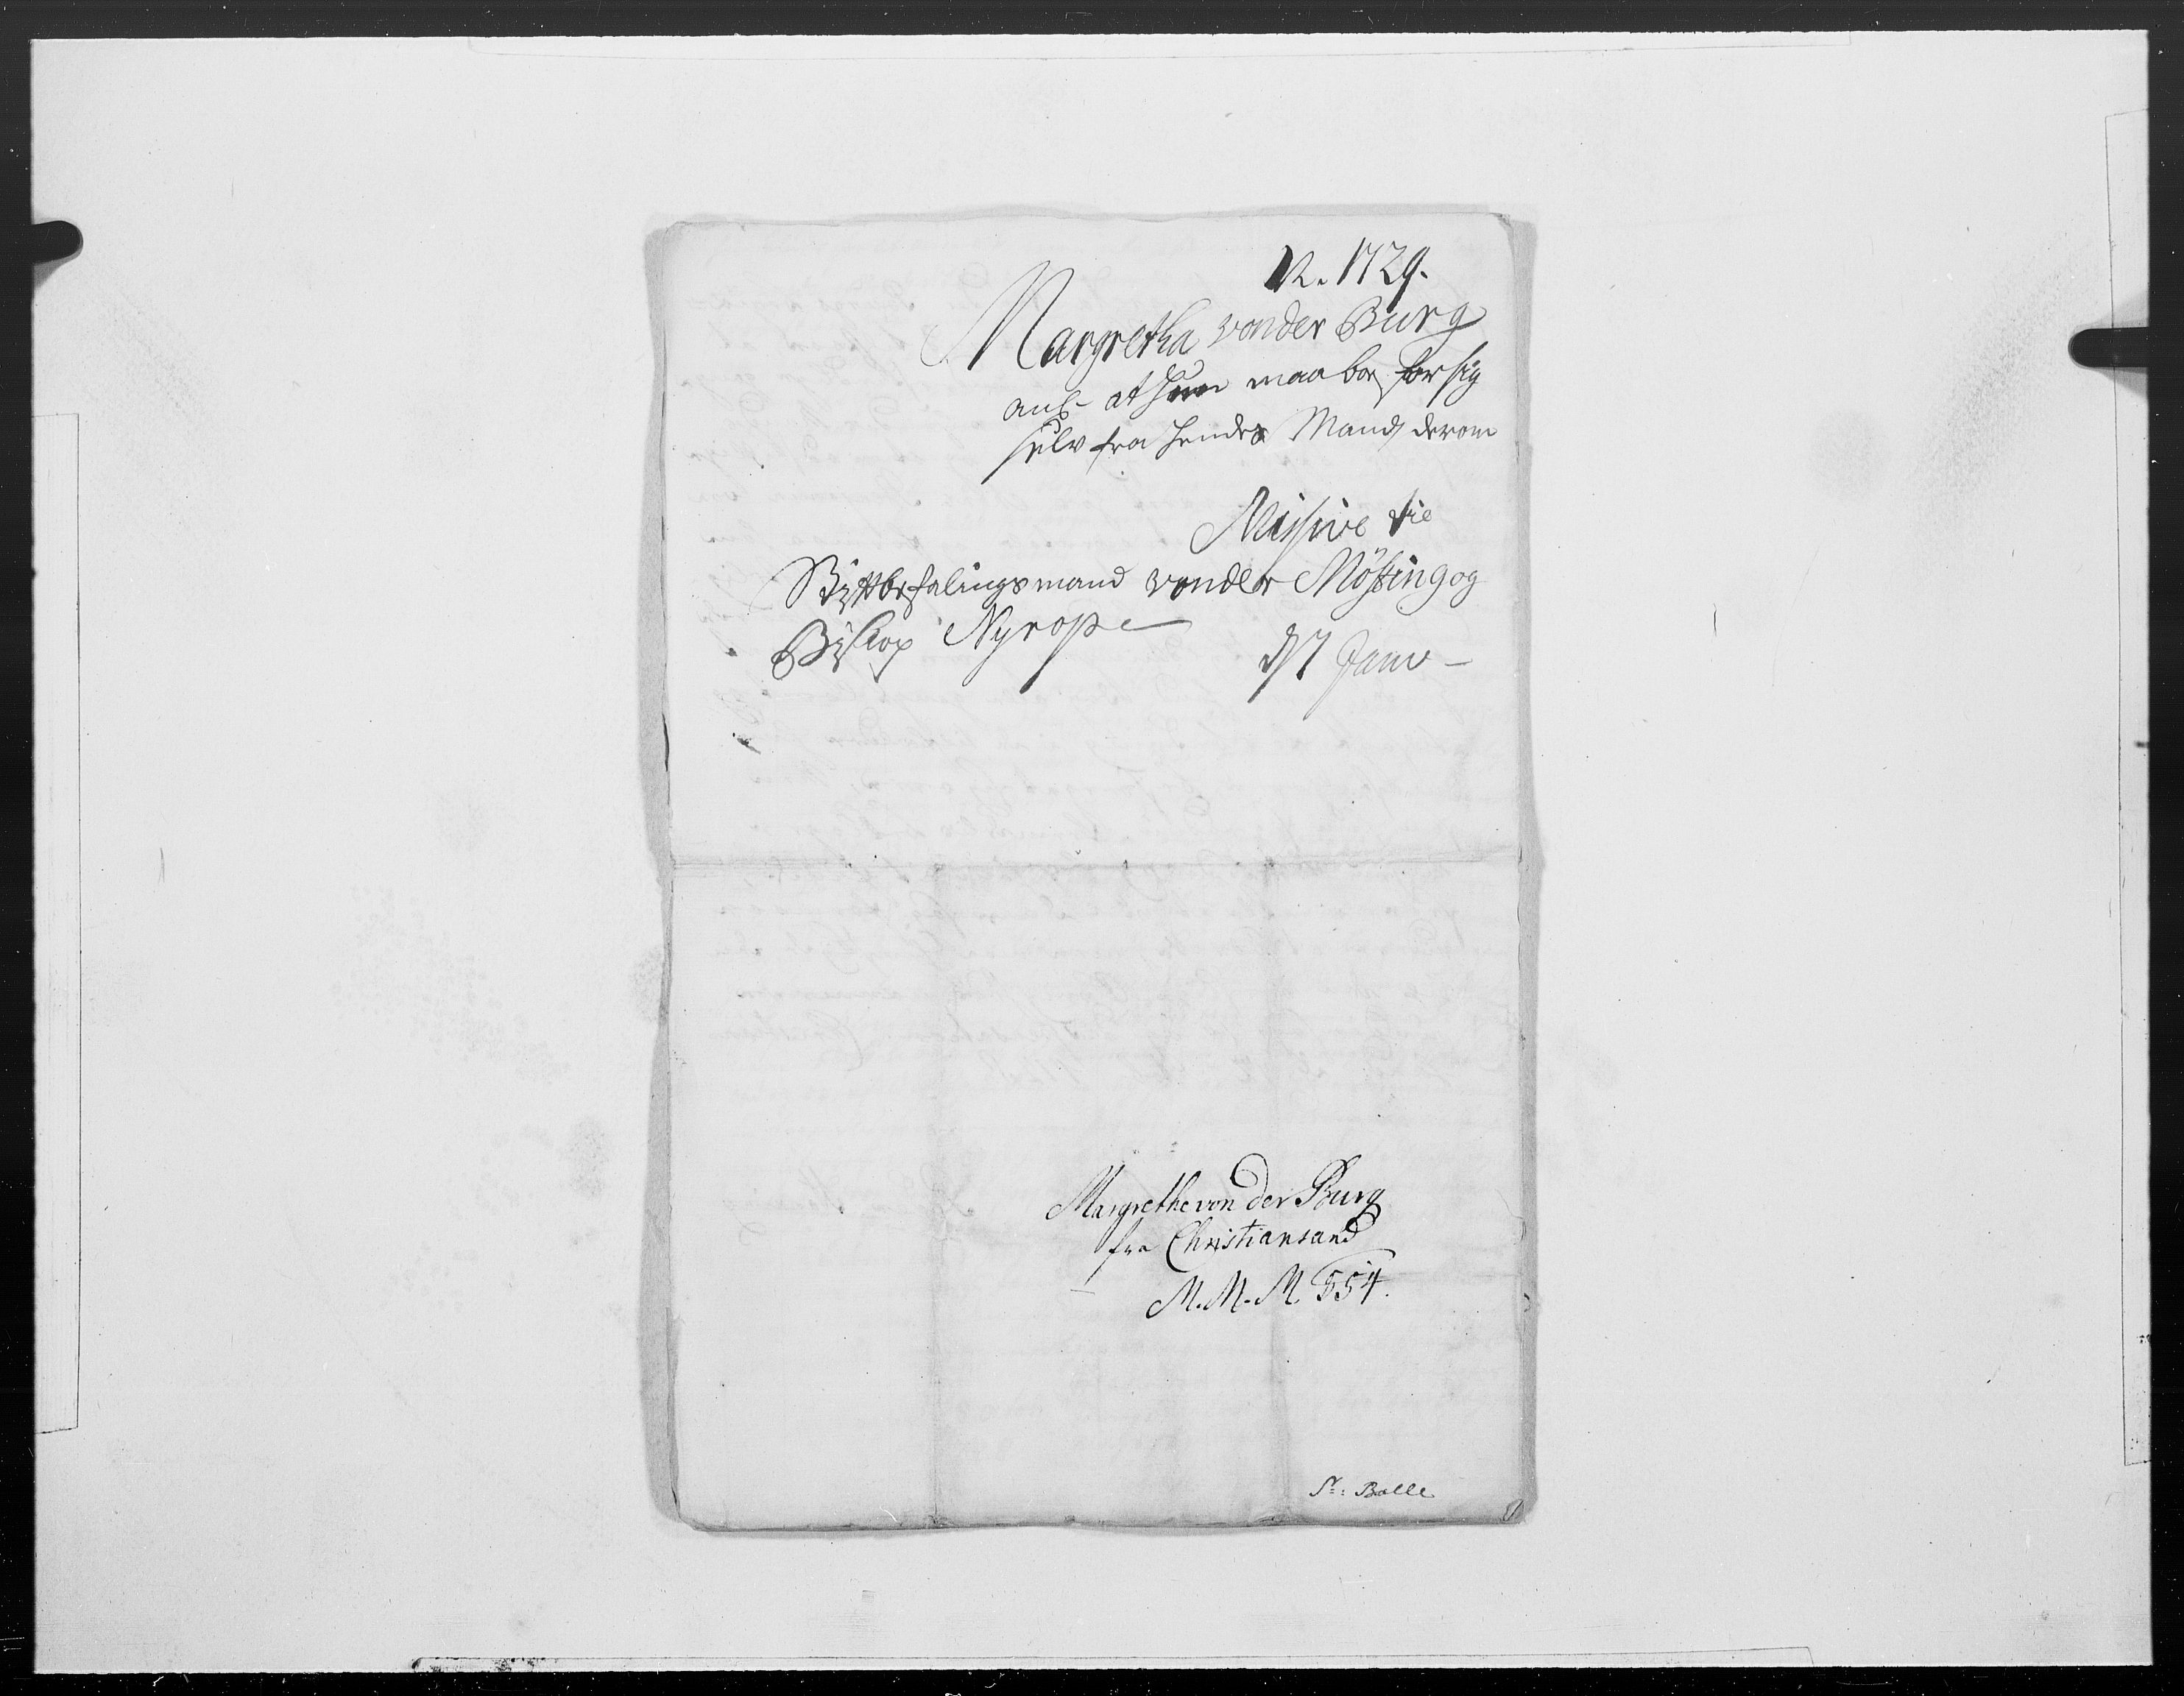 N. 1729.
Margretha vonder Burg
ans. at hun maa boe for sig
selv fra hendes Mand, derom
Missive til
Stiftbefalingsmand vonder Møsting og
Biskop Nyrope
d 7 Janv
Margrethe von der Burg
fra Christiansand
M. M. M. 554.
Sr: Balle